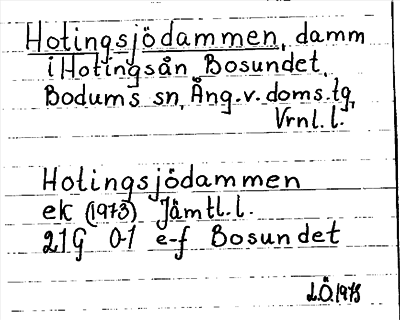 Hotingsjödammen, damm
i Hotingsån Bosundet,
Bodums sn, Ång.v.doms.tg,
Vrnl.l.
Hotingsjödammen
ek (1973) Jämtl.l.
21G 0-1 e-f Bosundet
L.Ö.1973